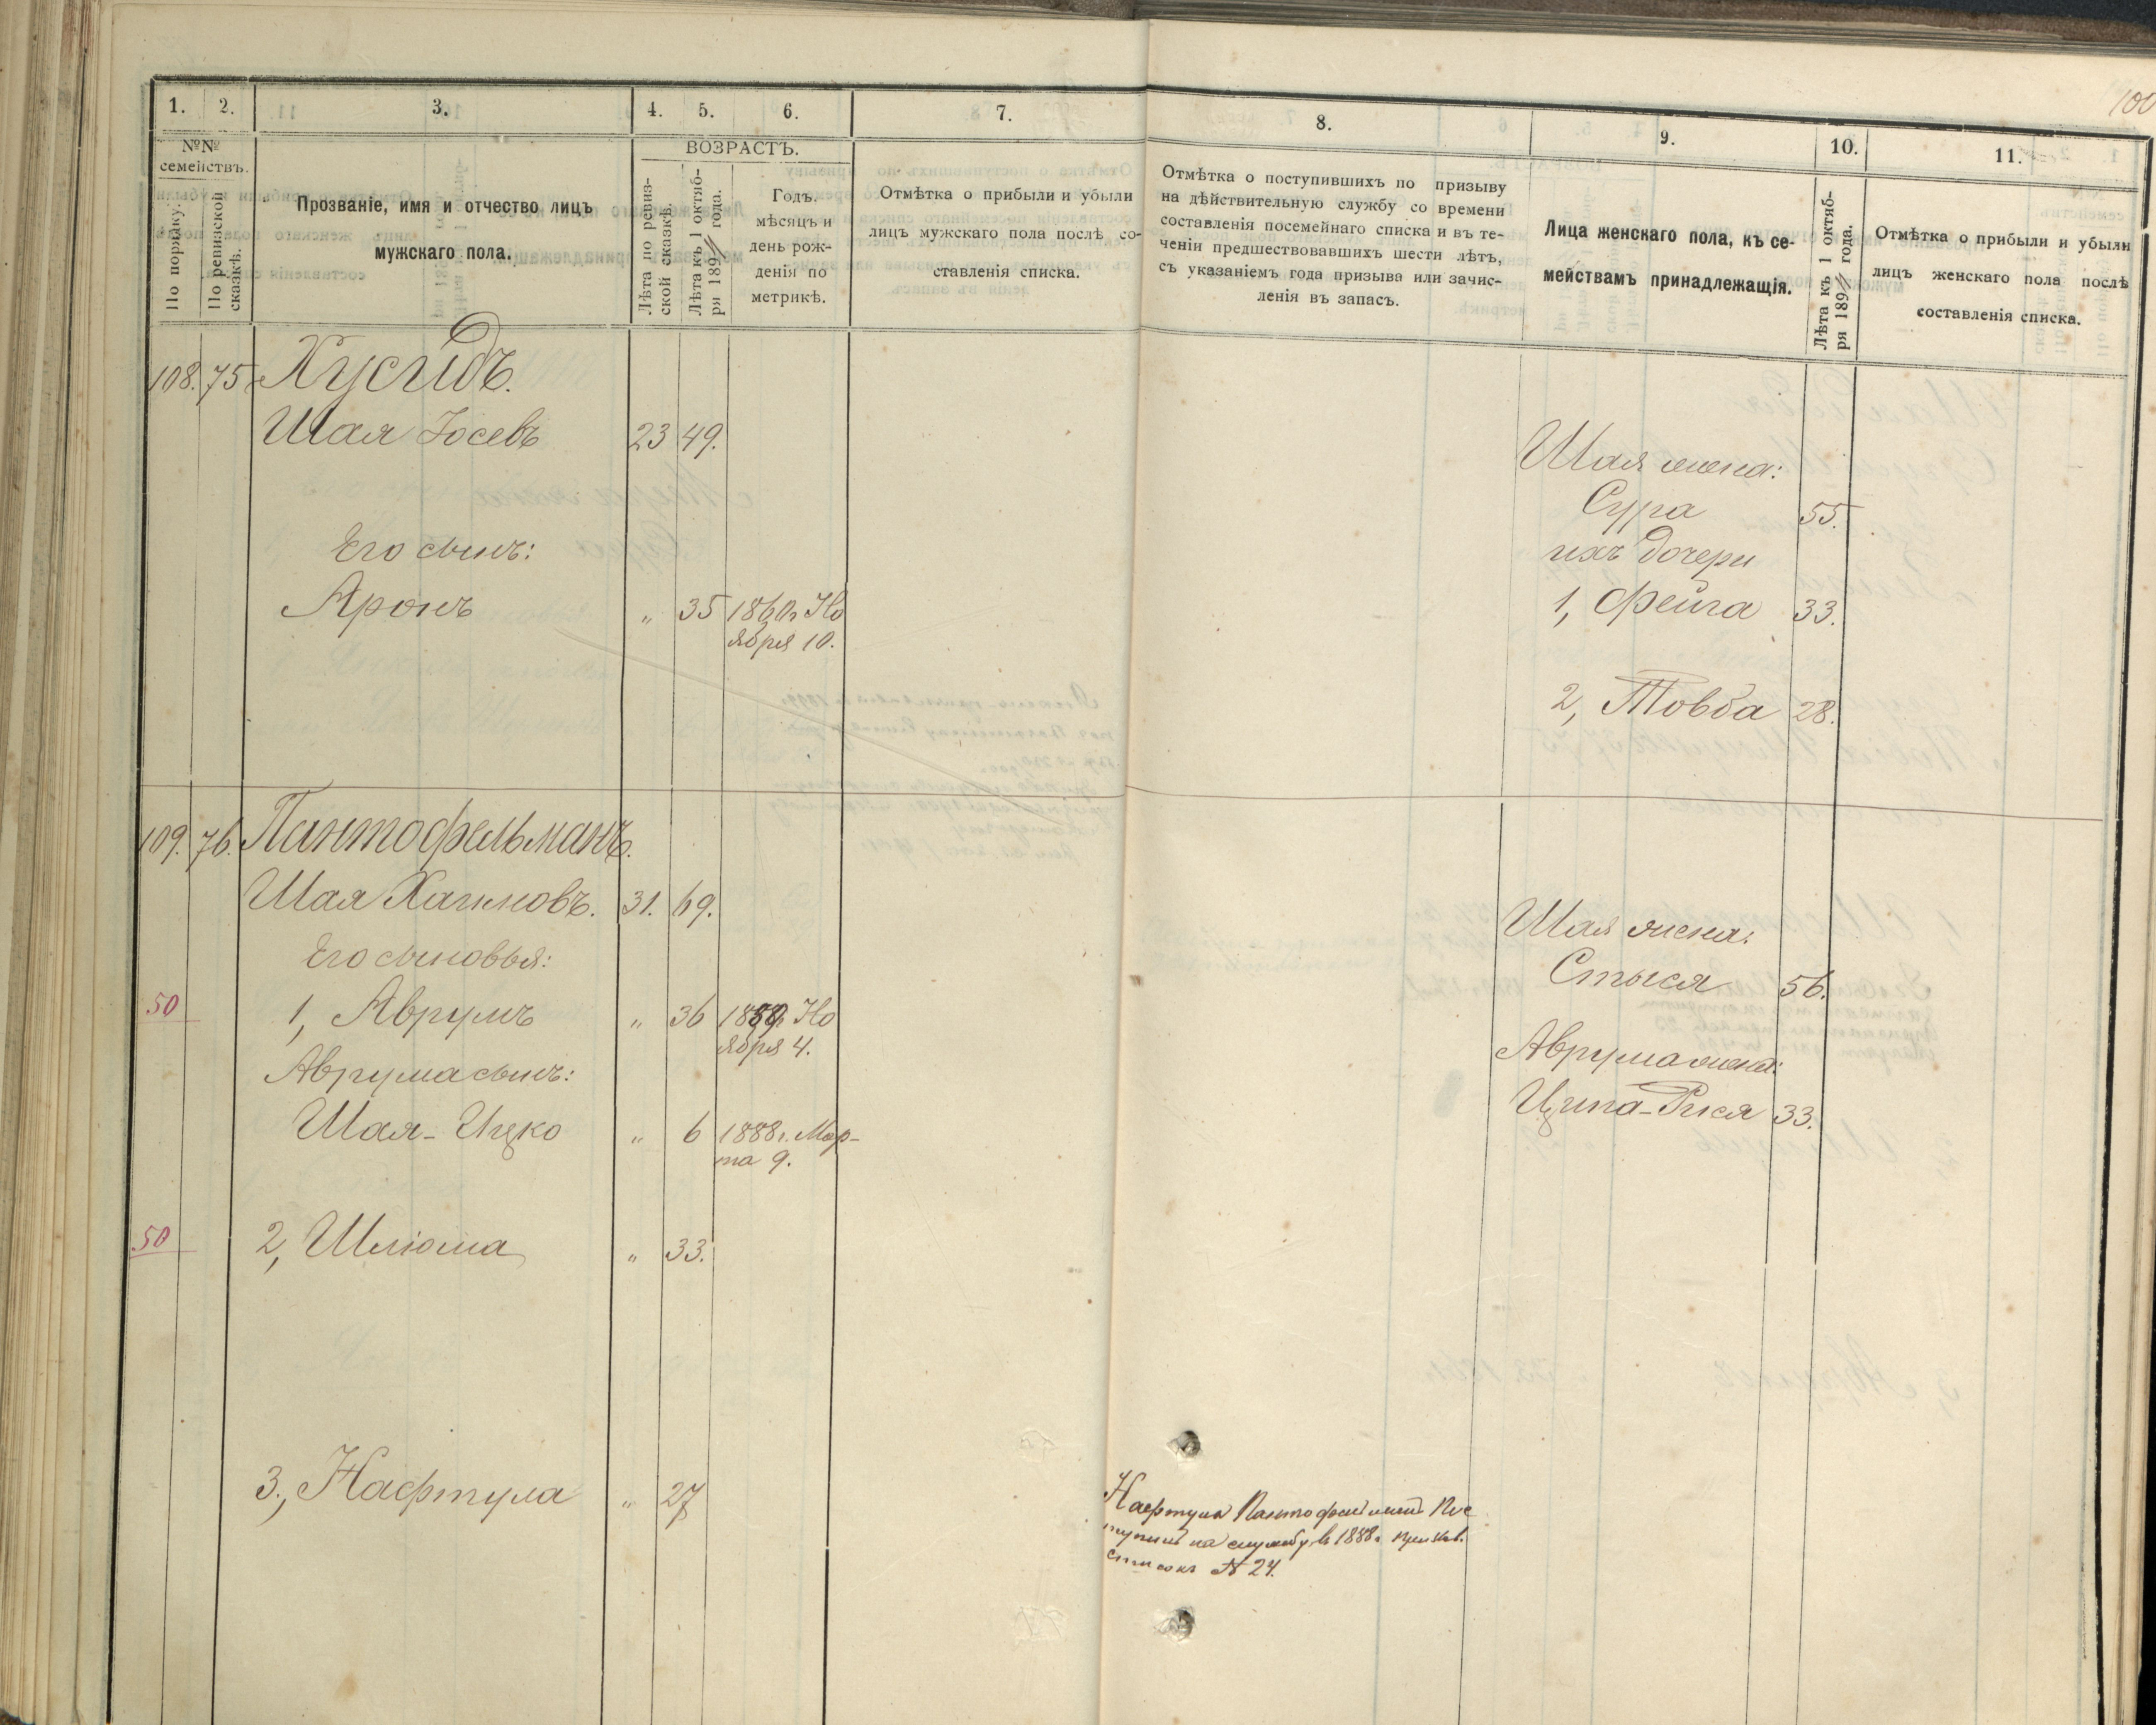 100
1. 2. 3. 4. 5. 6. 7. 8. 9. 10. 11.
№№ семействъ.
По порядку.
По ревизской сказкѣ.
Прозваніе, имя и отчество лицъ
мужскаго пола.
ВОЗРАСТЪ.
Лѣта по ревиз-
ской сказкѣ.
Лѣта къ 1 октяб-
ря 189 года.
Годъ,
мѣсяцъ и
день рож-
денія по
метрикѣ.
Отмѣтка о прибыли и убыли
лицъ мужскаго пола послѣ со-
ставленія списка.
Отмѣтка о поступившихъ по призыву
на дѣйствительную службу со времени
составленія посемейнаго списка и въ те-
ченіи предшествовавшихъ шести лѣтъ,
съ указаніемъ года призыва или зачис-
ленія въ запасъ.
Лица женскаго пола, къ се-
мействамъ принадлежащія.
Лѣта къ 1 октяб-
ря 189 года.
Отмѣтка о прибыли и убыли
лицъ женскаго пола послѣ
составленія списка.
108. 75 Хусидъ.
Шая Іосевъ 23 49.
Шая жена:
Сура 55.
Его сынъ:
ихъ дочери
Аронъ " 35 1860г Но
ября 10.
1, Фейга 33.
2, Товба 28.
109. 76. Пантофельманъ.
Шая Хаимовъ. 31. 69.
Шая жена:
Его сыновья:
Стыся 56.
50 1, Аврумъ " 36 Но
ября 4.
Аврума жена:
Аврума сынъ:
Ципа-Рися 33.
Шая-Ицко " 6 1888г. Мар-
та 9.
50 2, Шлiома " 33.
3., Нафтула " 27
Нафтула Пос
тупилъ на службу в 1888г призыв.
списокъ № 24.